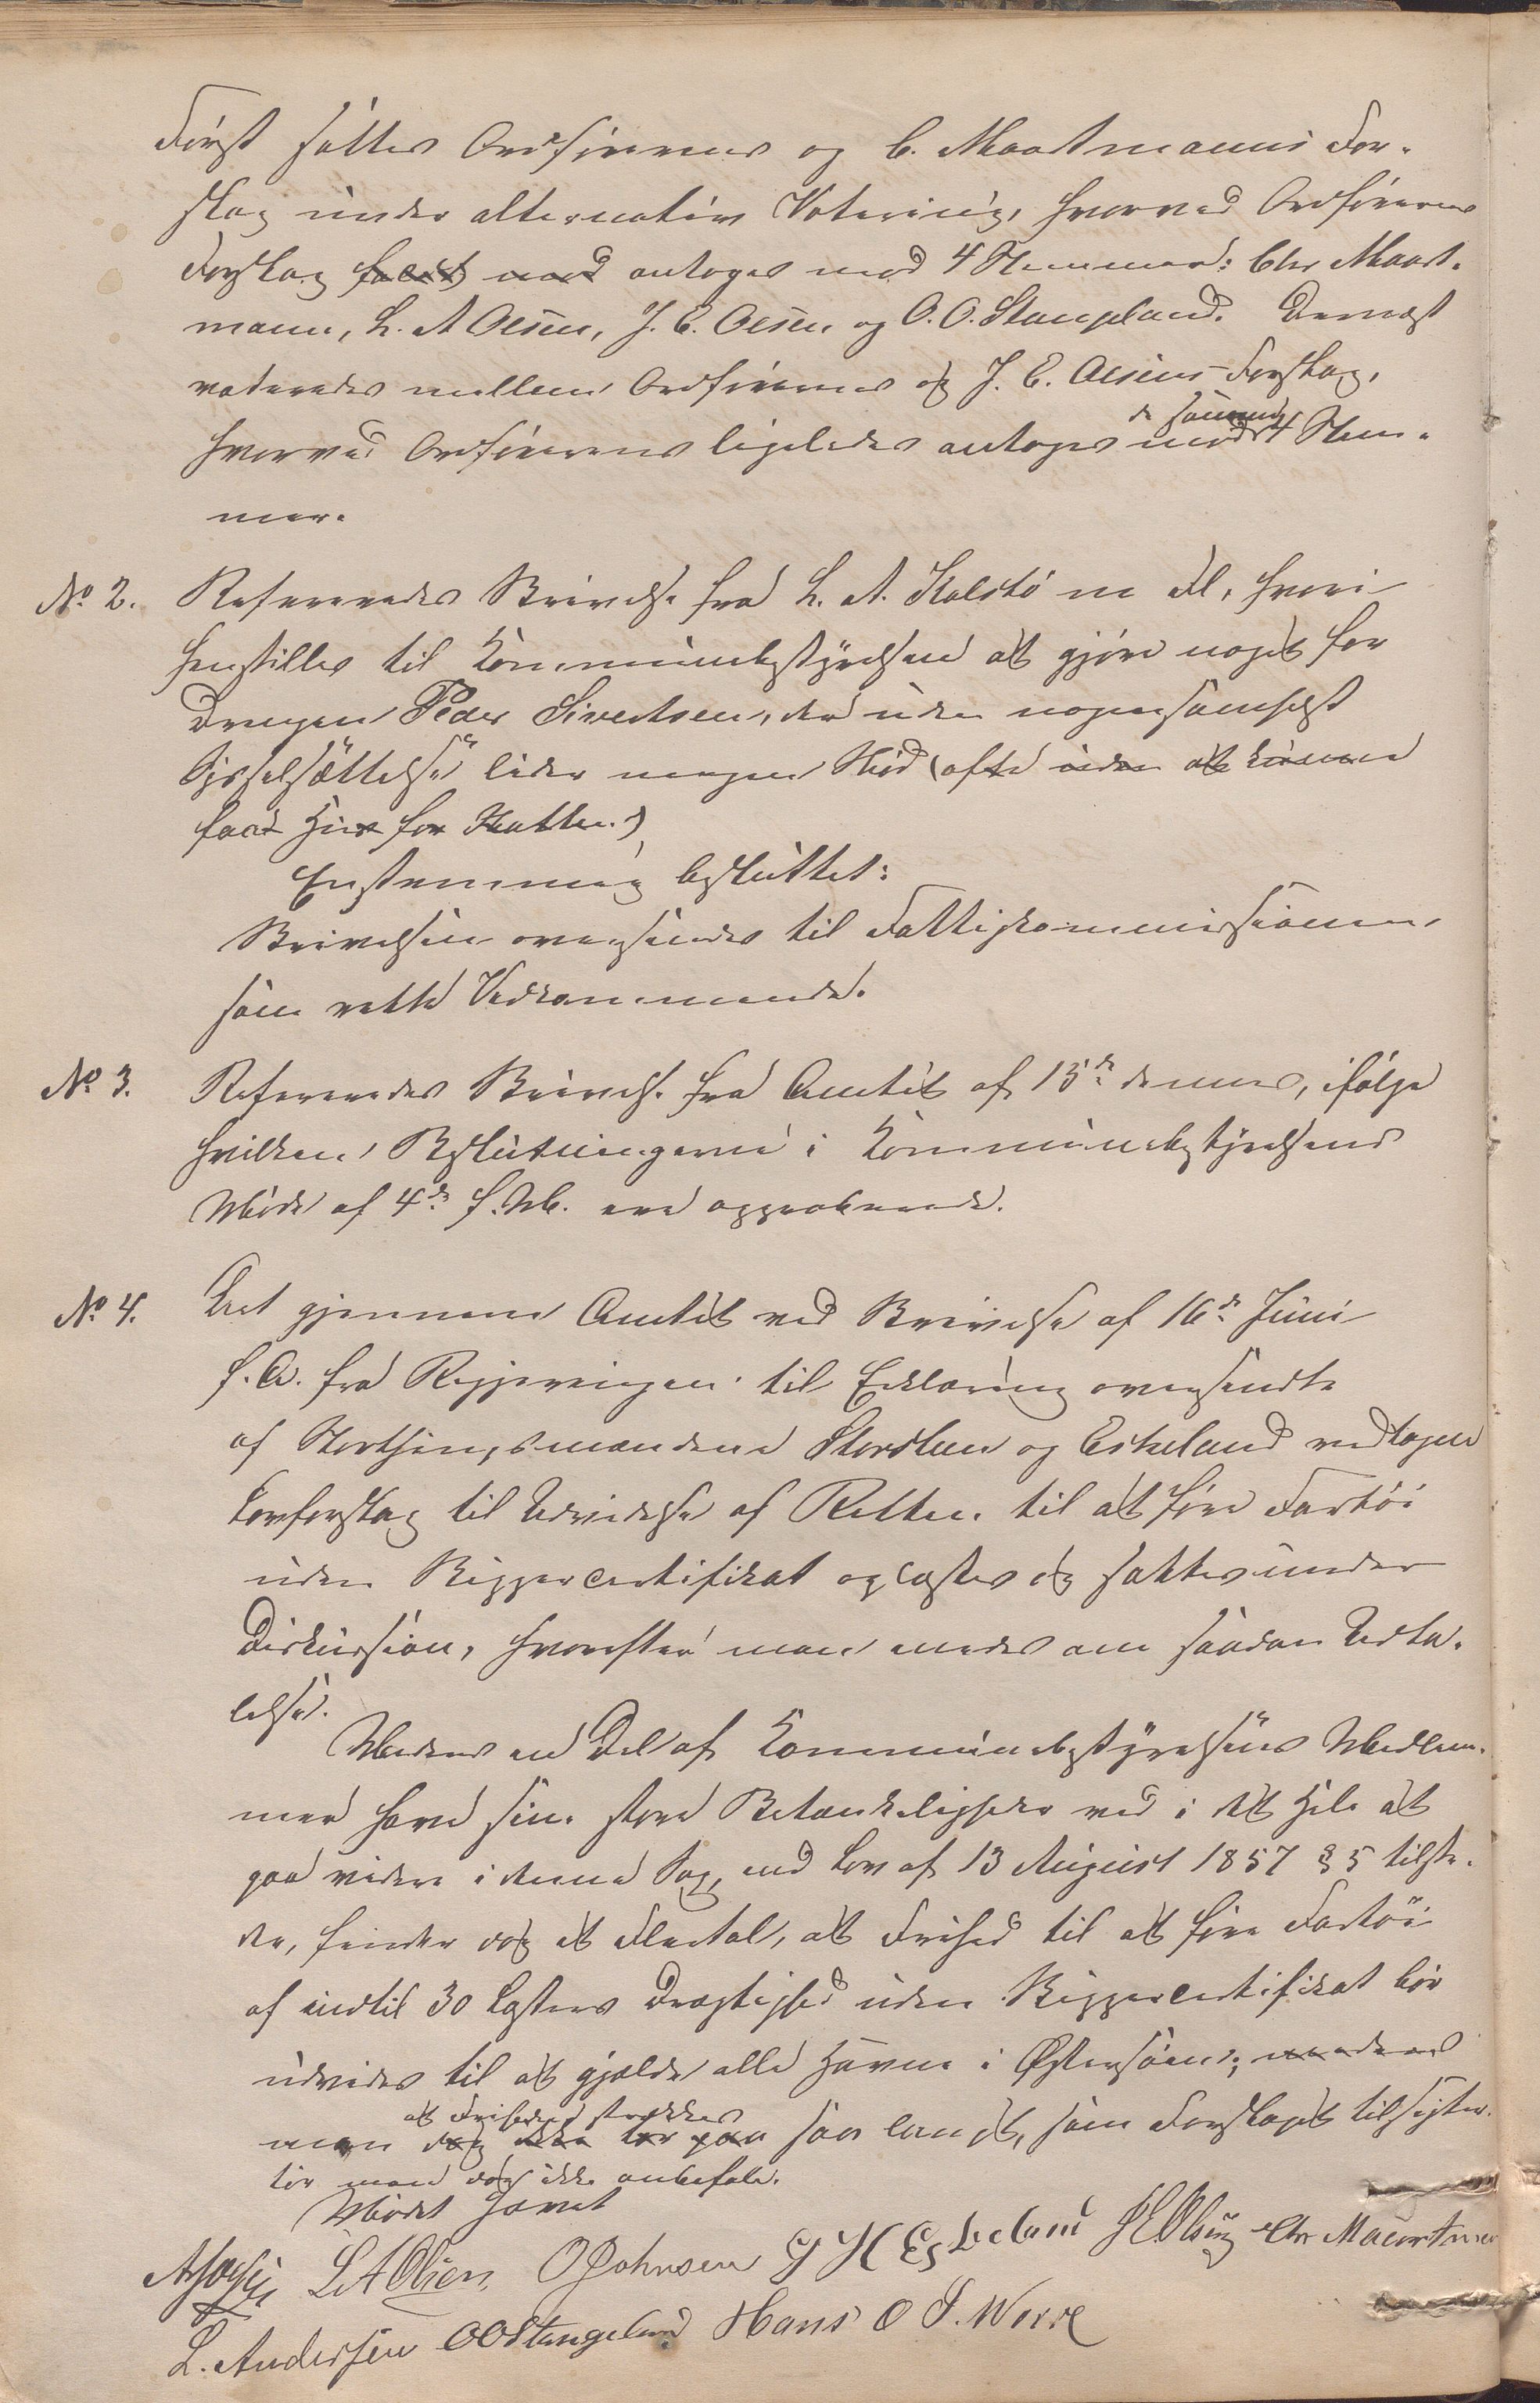 Først sattes Ordførerens og C. Maartmanns For-
slag under alternativ Votering, hvorved Ordførerens
Forslag faldt mod antoges mod 4 Stemmer: Chr Maart-
mann, L. A Olsen, J. E. Olsen og O. O. Stangeland. Dernæst
voteredes mellem Ordførerens og J. E. Olsens Forslag,
de samme
hvorved Ordførerens ligeledes antoges mod 4 Stem-
mer.
No 2. Refereredes Skrivelse fra L. A. Kalstø m Fl, hvori
henstilles til Kommunebestyrelsen at gjøre noget for
Drengen Peder Sivertsen, der uden nogensomhelst
Sysselsættelse lider megen Nød (ofte uden at kunne
faa Hus for Natten.)
Enstemmig besluttet:
Skrivelsen oversendes til Fattigkommissionen
som rette Vedkommende.
No 3. Refereredes Skrivelse fra Amtet af 15de dennes, ifølge
hvilken Beslutningerne i Kommunebestyrelsens
Møde af 4de f. M. ere approberede.
No 4. Det gjennem Amtet ved Skrivelse af 16de Juni
f. A. fra Regjeringen til Erklæring oversendte
af Storthingsmændene Stordlien og Eskeland vedtagne
Lovforslag til Udvidelse af Retten til at føre Fartøi
uden Skippercertifikat oplæstes og sattes under
Diskussion, hvorefter man enedes om saadan Udta-
lelse.
Medens en Del af Kommunebestyrelsens Medlem-
mer have sine store Betænkeligheder ved i det Hele at
gaa videre i denne Sag, end Lov af 13 August 1857 § 5 tilste-
der, finder dog et Flertal, at Frihed til at føre Fartøi
af indtil 30 Læsters Drægtighed uden Skippercertifikat bør
udvides til at gjælde alle Havne i Østersøen; medens
at Friheden strækkes
man dog ikke tør gaa saa langt, som Forslaget tilsigter
tør man dog ikke anbefale.
Mødet hævet
L A Olsen O Johnsen J H Eskeland J E Olsen Chr Maartman
L. Andersen O O Stangeland Hans O S. Worre